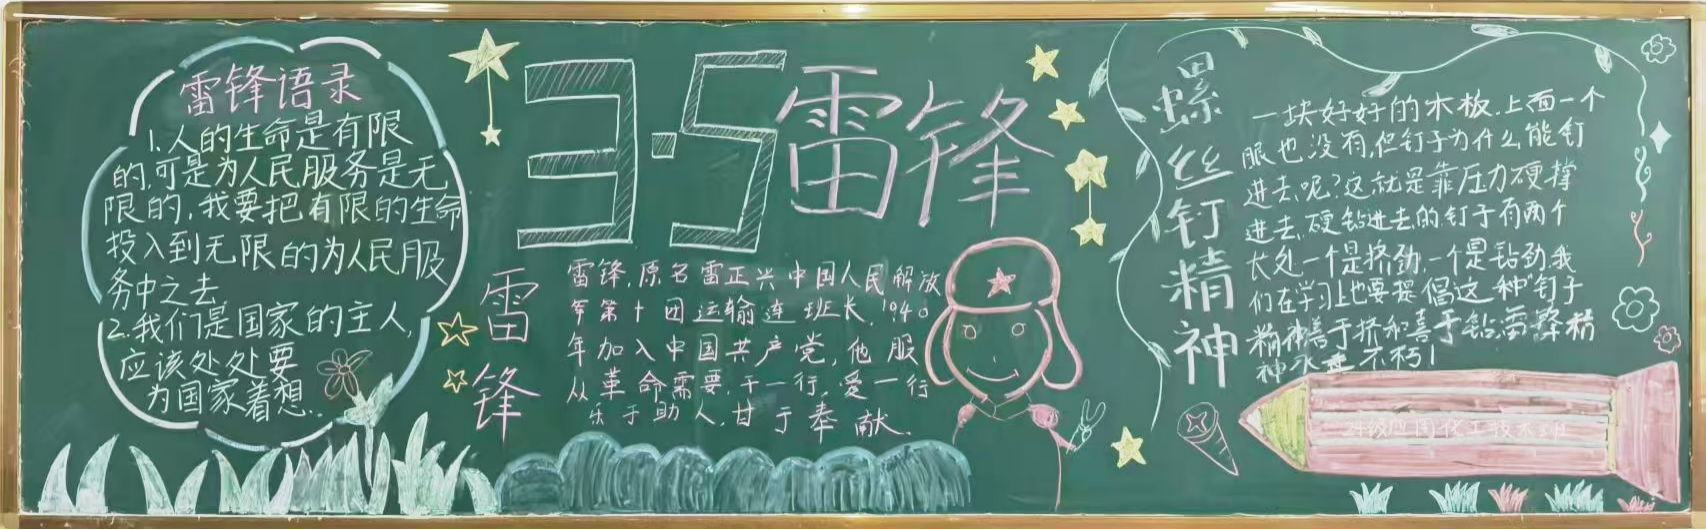 雷锋语录
1.人的生命是有限
的,可是为人民服务是无
限的,我要把有限的生命
投入到无限的为人民服
务中之去.
2.我们是国家的主人,
应该处处要
为国家着想..
3·5雷锋
雷锋
雷锋,原名雷正兴中国人民解放
军第十团运输连班长,1940
年加入中国共产党,他服
从革命需要,干一行,爱一行
乐于助人,甘于奉献.
螺丝钉精神
一块好好的木板.上面一个
眼也没有,但钉子为什么能钉
进去呢?这就是靠压力硬撑
进去,硬钻进去的,钉子有两个
长处一个是挤劲,一个是钻劲,我
们在学习上也要提倡这种"钉子
精神善于挤和善于钻.雷锋精
神永垂不朽!
应用化工技术